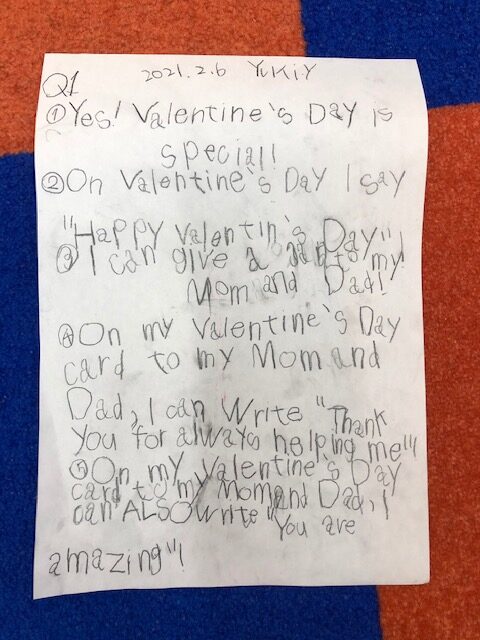 Q1 2021.2.6 YUKiY
①Yes! Valentine's Day is
special!
②On Valentine's Day I say
"Happy Valentin's Day"!
③I can give a to my
Mom and Dad!
④On my Valentine's Day
card to my Mom and
Dad, I can Write "Thank
you for always helping me"!
⑤On my Valentine's Day
card to my Mom and Dad, I
can ALSO write "You are
amazing"!